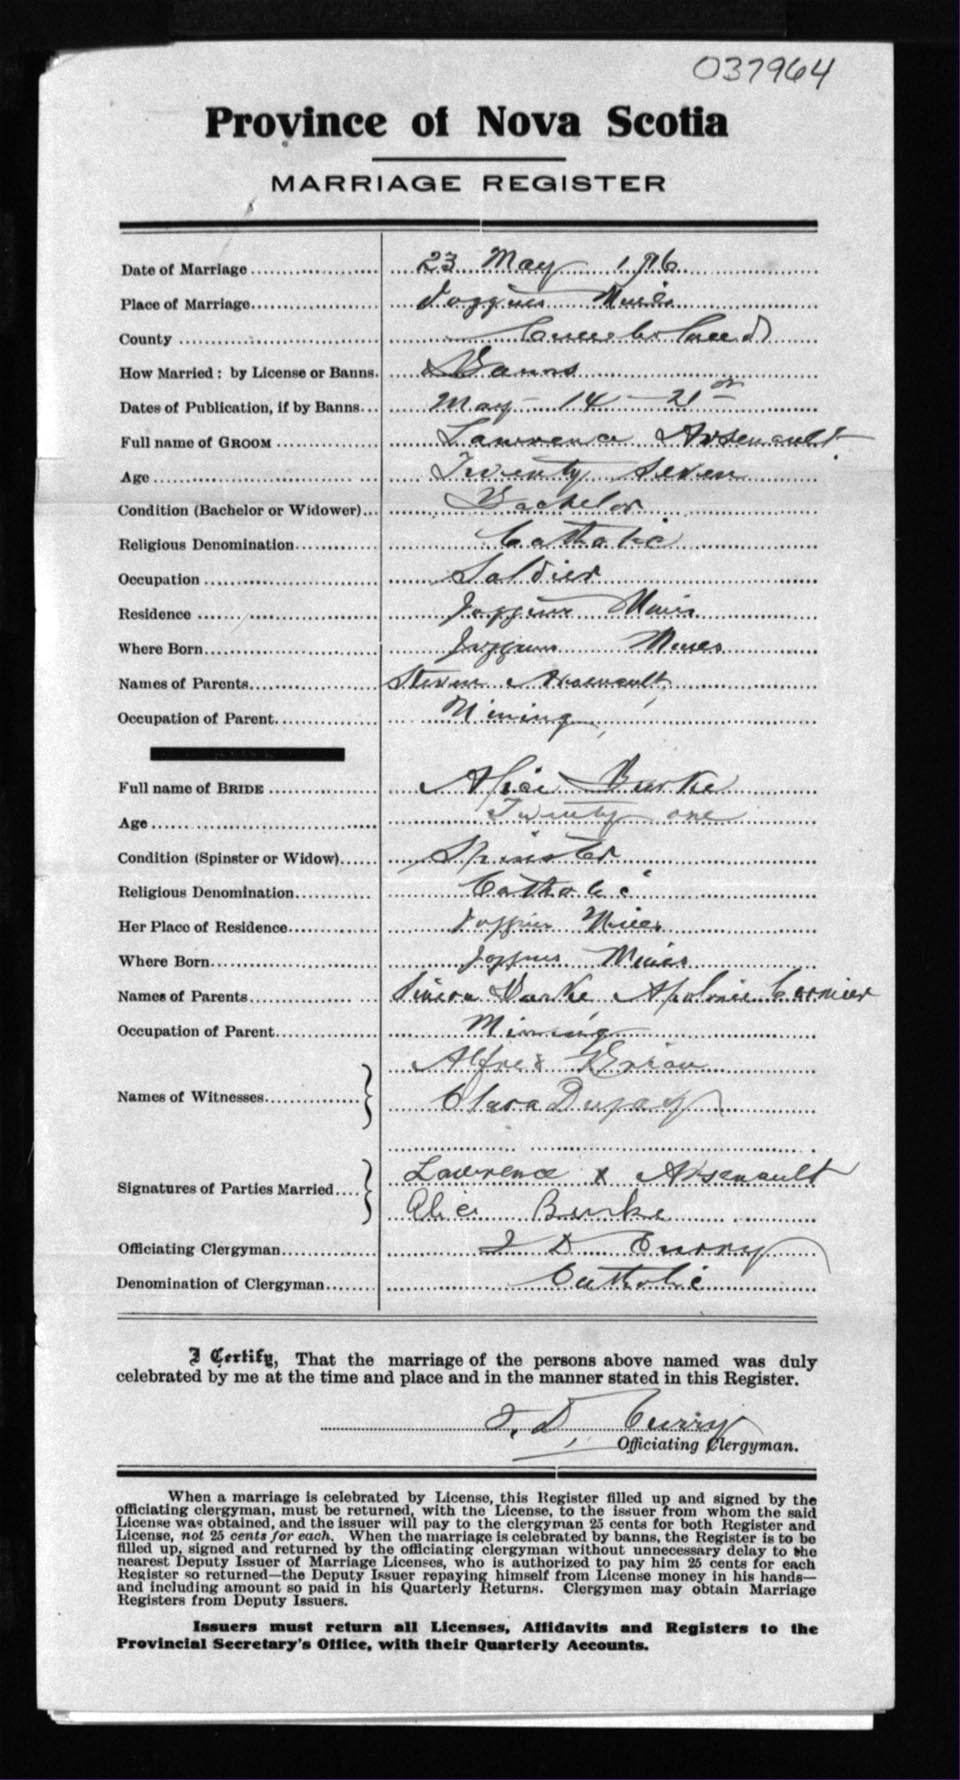 037964
Province of Nova Scotia
MARRIAGE REGISTER
Date of Marriage 23 May 1916
Place of Marriage Joggins Mines
County Cumberland
How Married: by License or Banns. Banns
Dates of Publication, if by Banns May 14 - 21
Full name of GROOM Lawrence Arsenault
Age Twenty Seven
Condition (Bachelor or Widower) Bachelor
Religious Denomination Catholic
Occupation Soldier
Residence Joggins Mines
Where Born Joggins Mines
Names of Parents Arsenault
Occupation of Parent Mining
Full name of BRIDE Alice Burke
Age Twenty one
Condition (Spinster or Widow) Spinster
Religious Denomination Catholic
Her Place of Residence Joggins Mines
Where Born Joggins Mines
Names of Parents Simeon Burke Cormier
Occupation of Parent Mining
Alfred
Names of Witnesses Clara
Lawrence x Arsenault
Signatures of Parties Married
Alice Burke
Officiating Clergyman J D Curry
Denomination of Clergyman Catholic
I Certify, That the marriage of the persons above named was duly
celebrated by me at the time and place and in the manner stated in this Register.
J. D. Curry
Officiating Clergyman.
When a marriage is celebrated by License, this Register filled up and signed by the
officiating clergyman, must be returned, with the License, to the issuer from whom the said
License was obtained, and the issuer will pay to the clergyman 25 cents for both Register and
License, not 25 cents for each. When the marriage is celebrated by banns, the Register is to be
filled up, signed and returned by the officiating clergyman without unnecessary delay to the
nearest Deputy Issuer of Marriage Licenses, who is authorized to pay him 25 cents for each
Register so returned—the Deputy Issuer repaying himself from License money in his hands—
and including amount so paid in his Quarterly Returns. Clergymen may obtain Marriage
Registers from Deputy Issuers.
Issuers must return all Licenses, Affidavits and Registers to the
Provincial Secretary's Office, with their Quarterly Accounts.